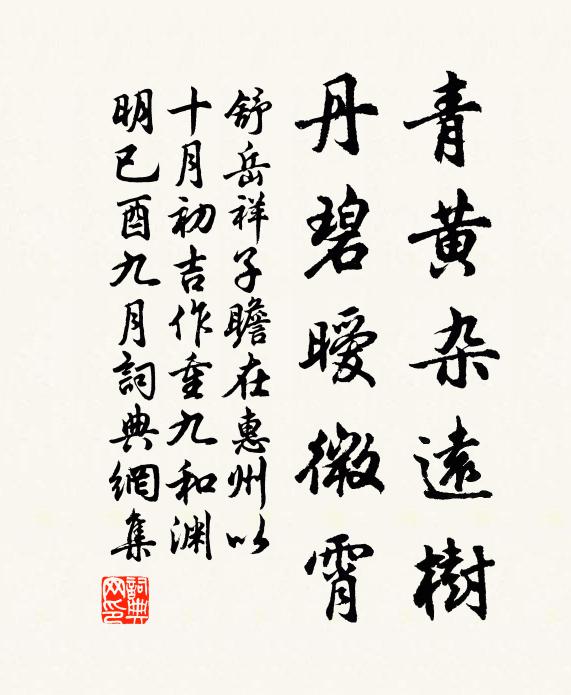 青黄杂遠樹
丹碧曖微霄
舒岳祥子瞻在惠州以
十月初吉作重九和渊
明已酉九月詞典網集
詞典
网印